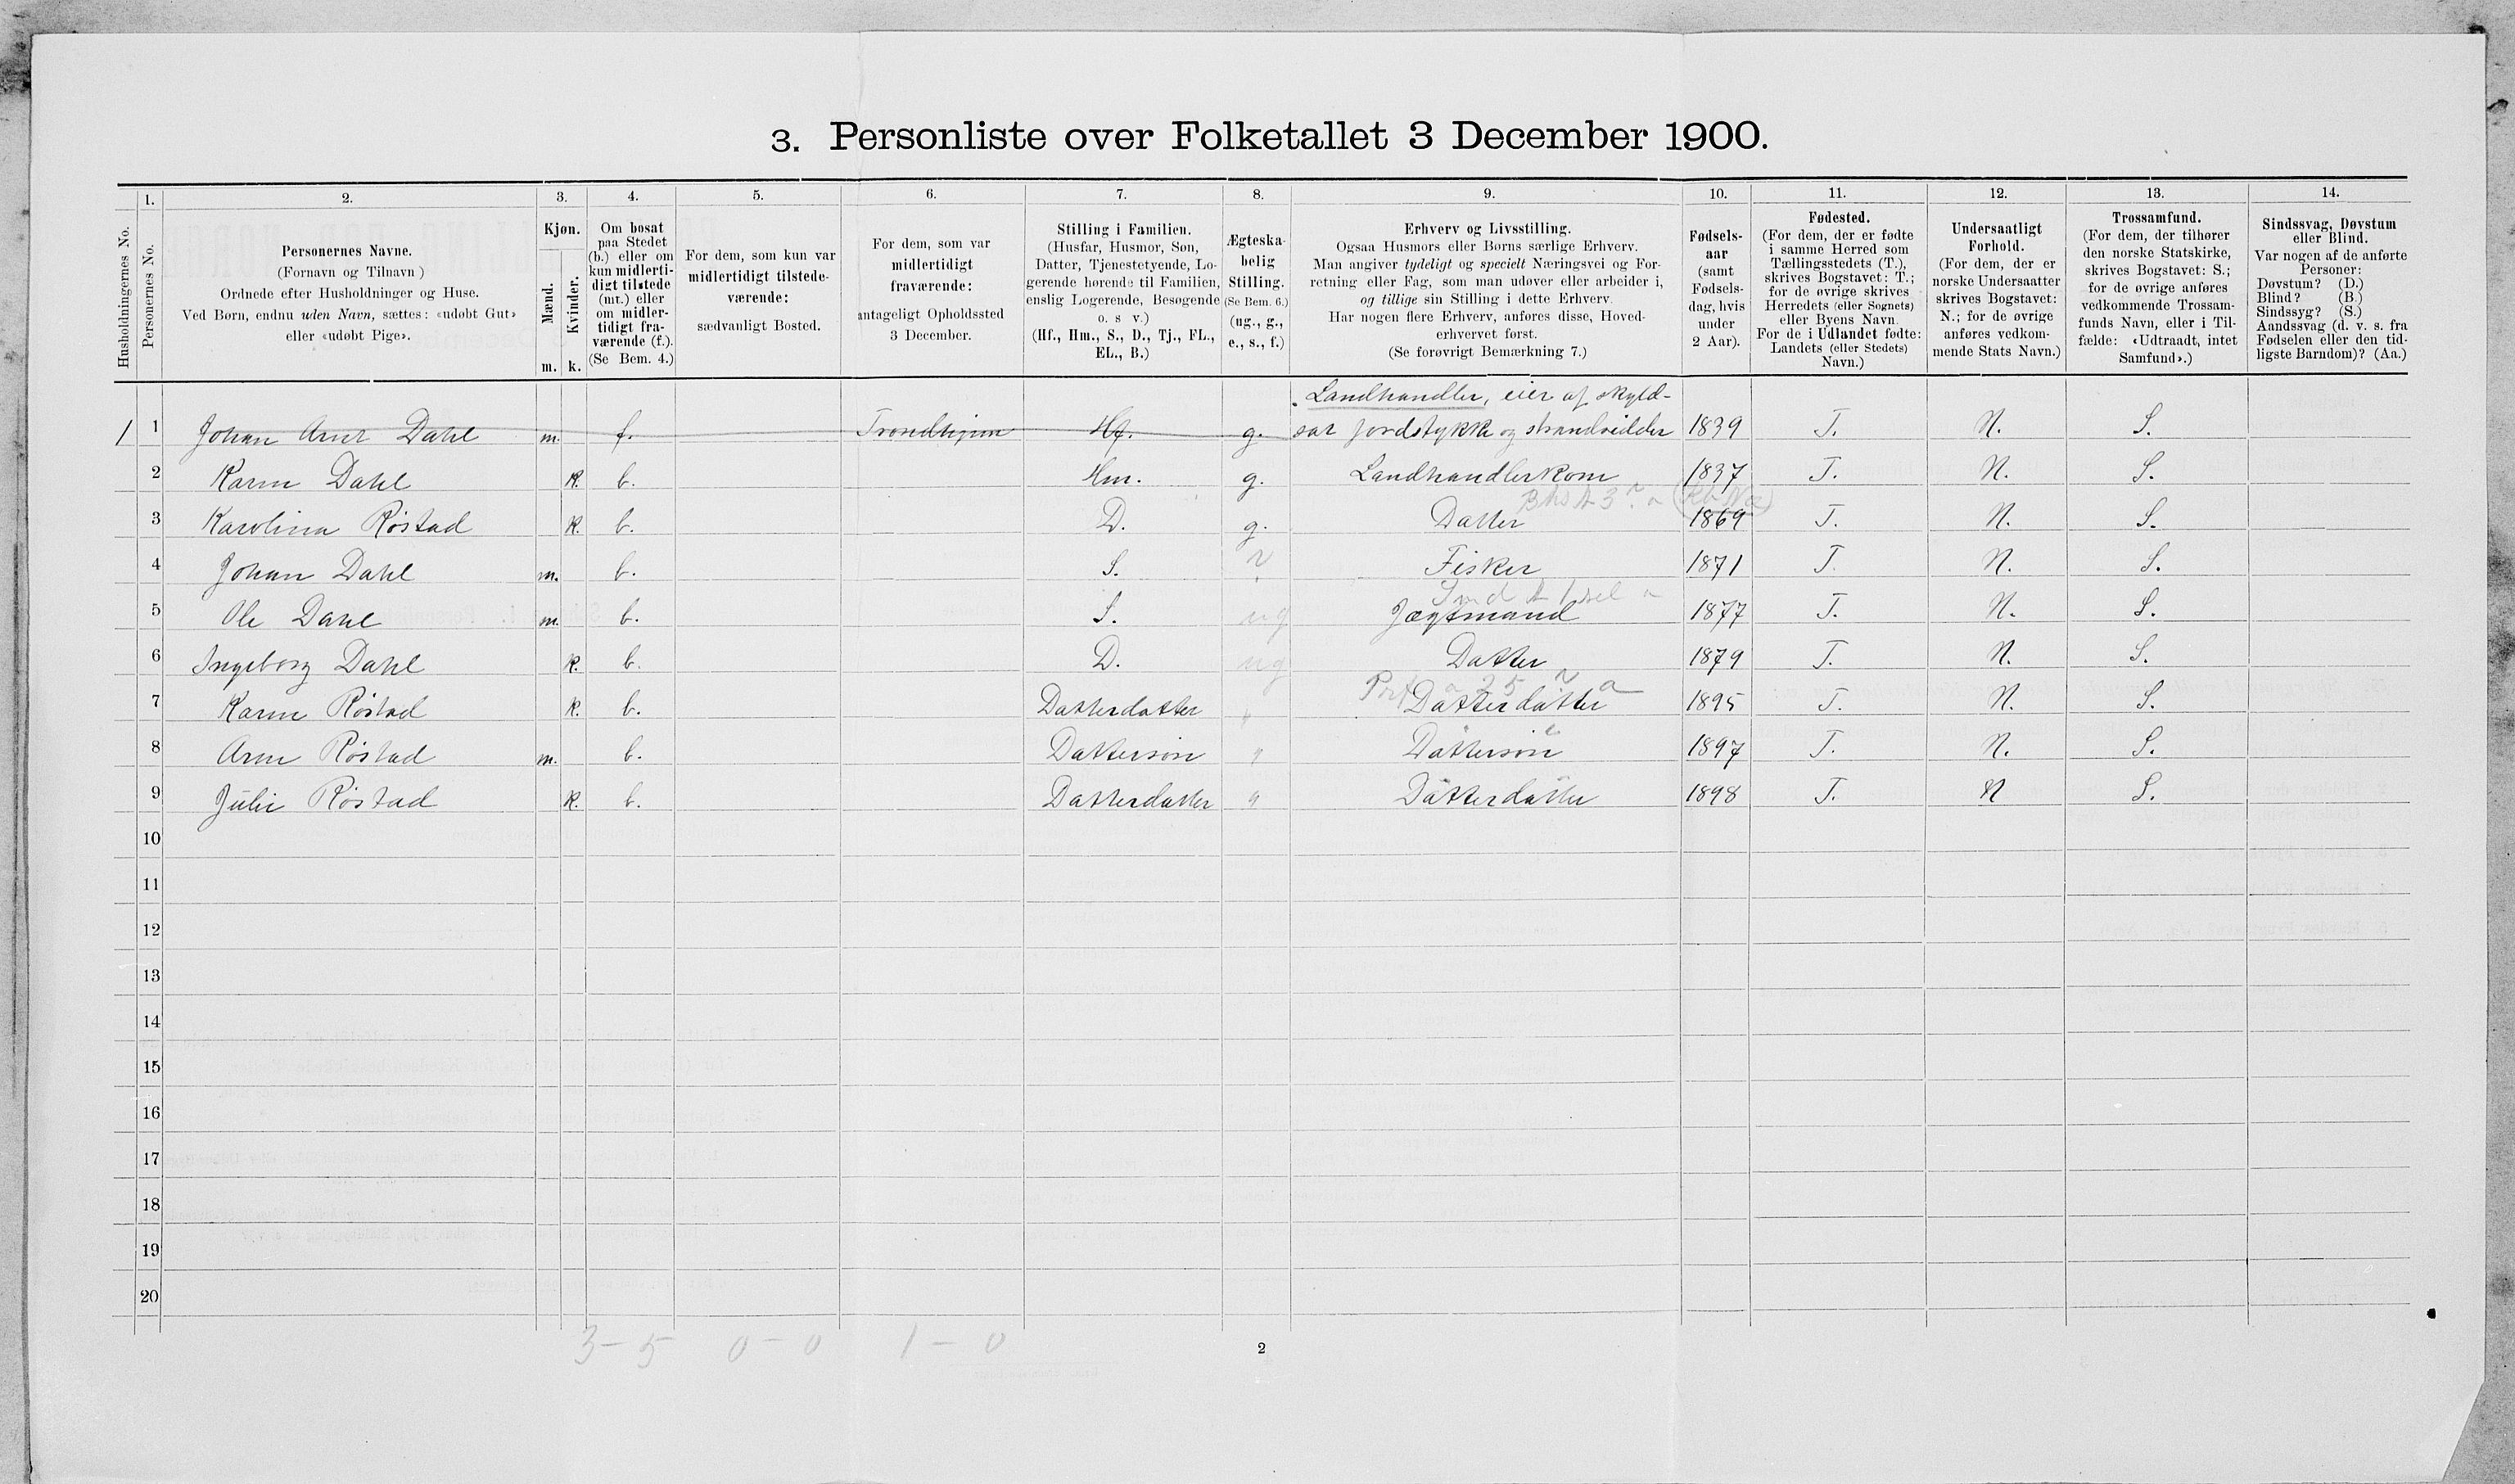 3. Personliste over Folketallet 3 December 1900.
1. 2. 3. 4. 5. 6. 7. 8. 9. 10. 11. 12. 13. 14.
Husholdningernes No.
Personernes No.
Personernes Navne.
(Fornavn og Tilnavn)
Ordnede efter Husholdninger og Huse.
Ved Børn, endnu uden Navn, sættes: «udøbt Gut»
eller «udøbt Pige».
Kjøn.
Mænd.
Kvinder.
m. k.
Om bosat
paa Stedet
(b.) eller om
kun midlerti-
digt tilstede
(mt.) eller
om midler-
tidigt fra-
værende (f.).
(Se Bem. 4.)
For dem, som kun var
midlertidigt tilstede-
værende:
sædvanligt Bosted.
For dem, som var
midlertidigt
fraværende:
antageligt Opholdssted
3 December.
Stilling i Familien.
(Husfar, Husmor, Søn,
Datter, Tjenestetyende, Lo-
gerende hørende til Familien,
enslig Logerende, Besøgende
o. s v.)
(Hf., Hm., S., D., Tj., FL.,
EL., B.)
Ægteska-
belig
Stilling.
(Se Bem. 6.)
(ug., g.,
e., s., f.)
Erhverv og Livsstilling.
Ogsaa Husmors eller Børns særlige Erhverv.
Man angiver tydeligt og specielt Næringsvei og For-
retning eller Fag, som man udøver eller arbeider i,
og tillige sin Stilling i dette Erhverv.
Har nogen flere Erhverv, anføres disse, Hoved-
erhvervet først.
(Se forøvrigt Bemærkning 7.)
Fødsels-
aar
(samt
Fødsels-
dag, hvis
under
2 Aar).
Fødested.
(For dem, der er fødte
i samme Herred som
Tællingsstedets (T.),
skrives Bogstavet: T.;
for de øvrige skrives
Herredets (eller Sognets)
eller Byens Navn.
For de i Udlandet fødte:
Landets (eller Stedets)
Navn.)
Undersaatligt
Forhold.
(For dem, der er
norske Undersaatter
skrives Bogstavet:
N.; for de øvrige
anføres vedkom-
mende Stats Navn.)
Trossamfund.
(For dem, der tilhører
den norske Statskirke,
skrives Bogstavet: S.;
for de øvrige anføres
vedkommende Trossam-
funds Navn, eller i Til-
fælde: «Udtraadt, intet
Samfund».)
Sindssvag, Døvstum
eller Blind.
Var nogen af de anførte
Personer:
Døvstum? (D.)
Blind? (B.)
Sindssyg? (S.)
Aandssvag (d. v. s. fra
Fødselen eller den tid-
ligste Barndom)? (Aa.)
Landhandler, eier af skyld-
1 1 Johan Arnt Dahl m. f. Trondhjem Hf. g. sat jordstykke og strandsidder 1839 T. N. S.
2 Karen Dahl k. b. Hm. g. Landhandlerkone 1837 T. N. S.
3 Karolina Røstad k. b. D. g. Datter 1869 T. N. S.
4 Johan Dahl m. b. S. Fisker 1871 T. N. S.
5 Ole Dahl m. b. S. ug Jægtmand 1877 T. N. S.
6 Ingeborg Dahl k. b. D. ug Datter 1879 T. N. S.
7 Karen Røstad k. b. Datterdatter Datterdatter 1895 T. N. S.
8 Arne Røstad m. b. Dattersøn Dattersøn 1897 T. N. S.
9 Julie Røstad k. b. Datterdatter Datterdatter 1898 T. N S.
10
11
12
13
14
15
16
17
18
19
20
3 - 5 0 - 0 1 - 0
2